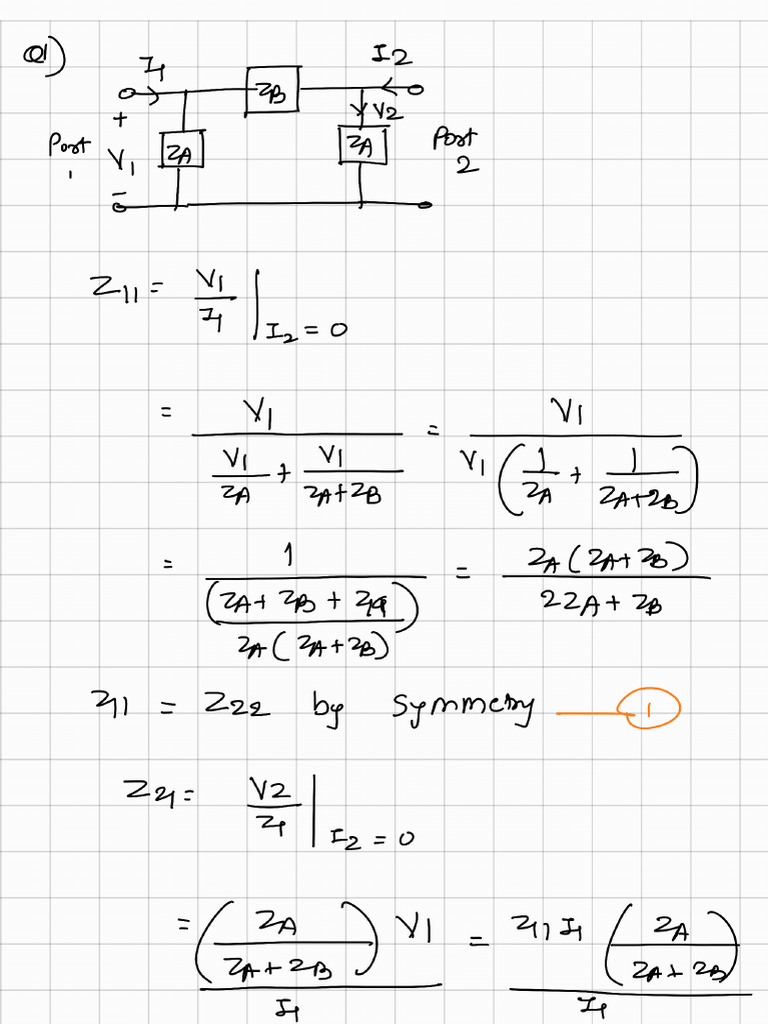 Q1)
I1 ZB I2
+ V2
Port 1 V1 ZA ZA Port 2
-
Z11 = V1/I1 | I2 = 0
= V1 / (V1/ZA + V1/(ZA+ZB)) = V1 / (V1 (1/ZA + 1/(ZA+ZB)))
= 1 / ((ZA + ZB + ZA) / (ZA (ZA+ZB))) = ZA (ZA+ZB) / (2ZA + ZB)
Z11 = Z22 by Symmetry — 1
Z21 = V2/I1 | I2 = 0
= (ZA / (ZA + ZB)) V1 / I1 = Z11 I1 (ZA / (ZA + ZB)) / I1